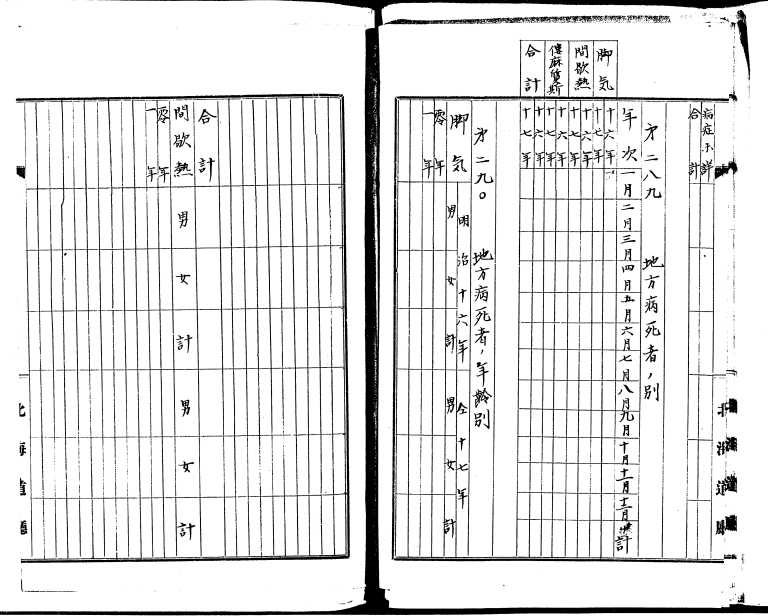 病症不詳
合計
第二八九　地方病死者ノ別
年次　一月　二月　三月　四月　五月　六月　七月　八月　九月　十月　十一月　十二月　計
脚気　十六年
十七年
間歇熱　十六年
十七年
僂麻質斯　十六年
十七年
合計　十六年
十七年
第二九〇　地方病死者ノ年齢別
明治十六年　仝十七年
脚気　男　女　計　男　女　計
零年
一年
合計
間歇熱　男　女　計　男　女　計
零年
一年
北海道廳